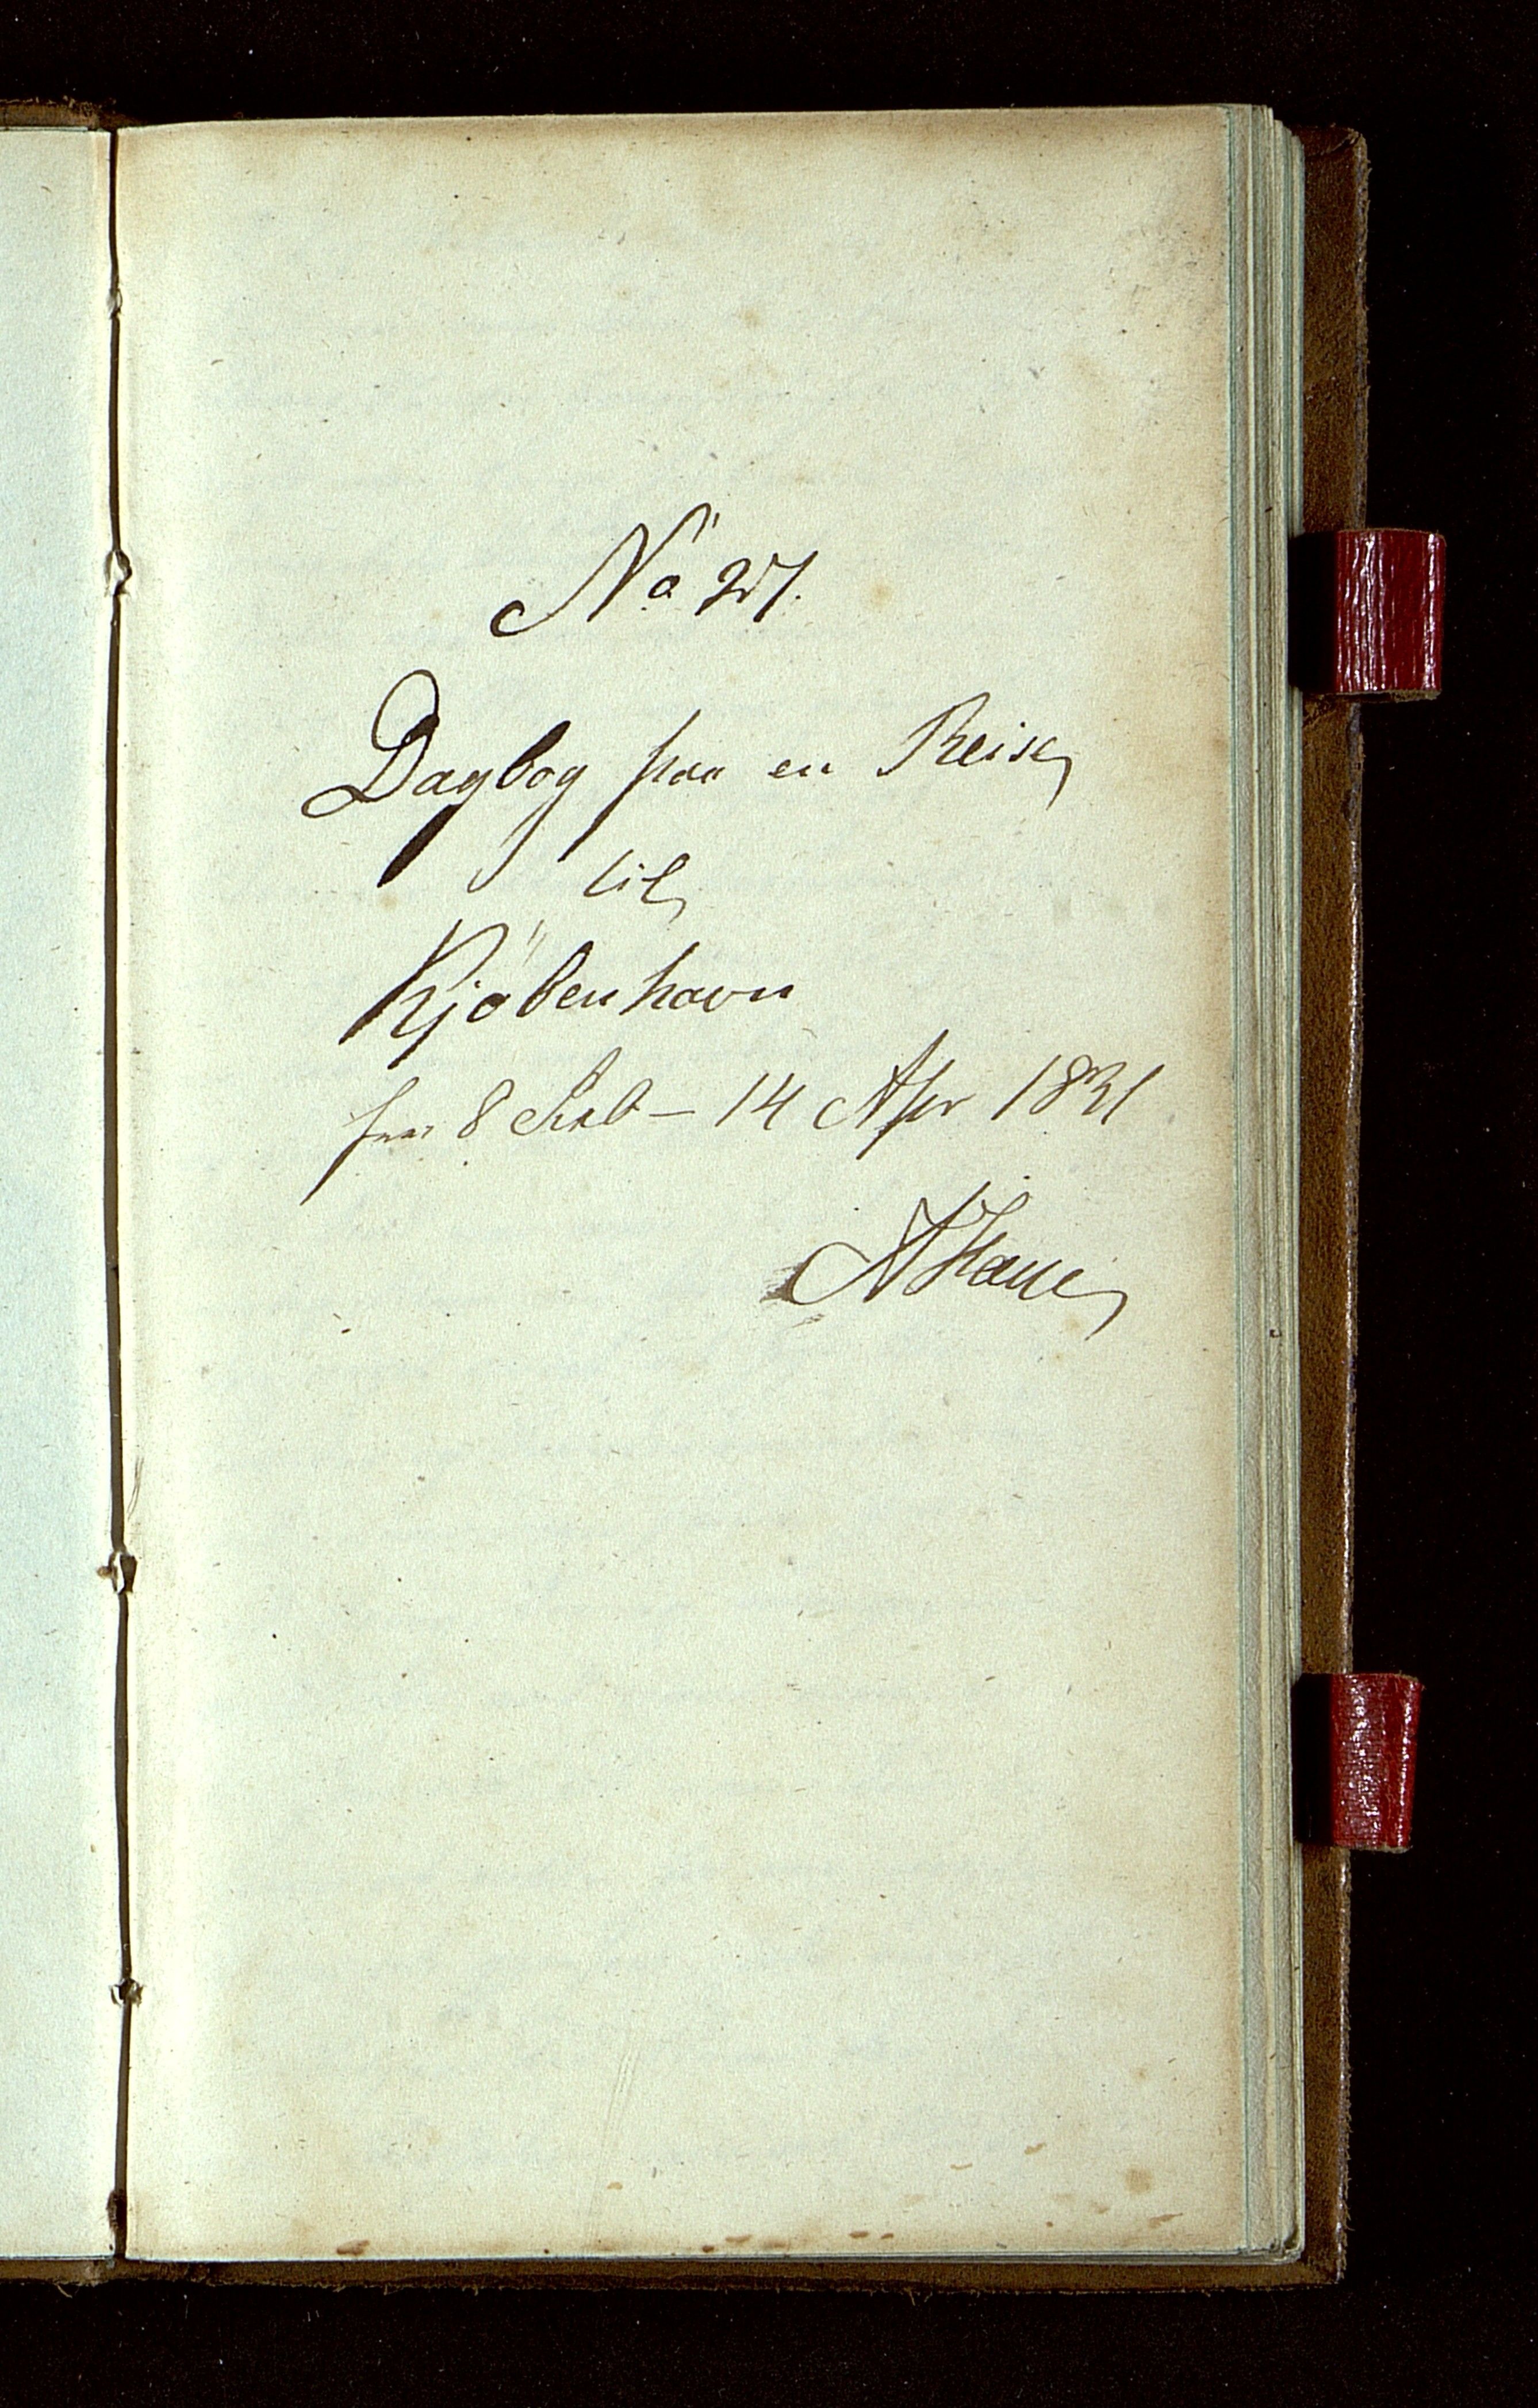 No 27.
Dagbog paa en Reise
til
Kjøbenhavn
fra 8 Feb – 14 Apr 1831